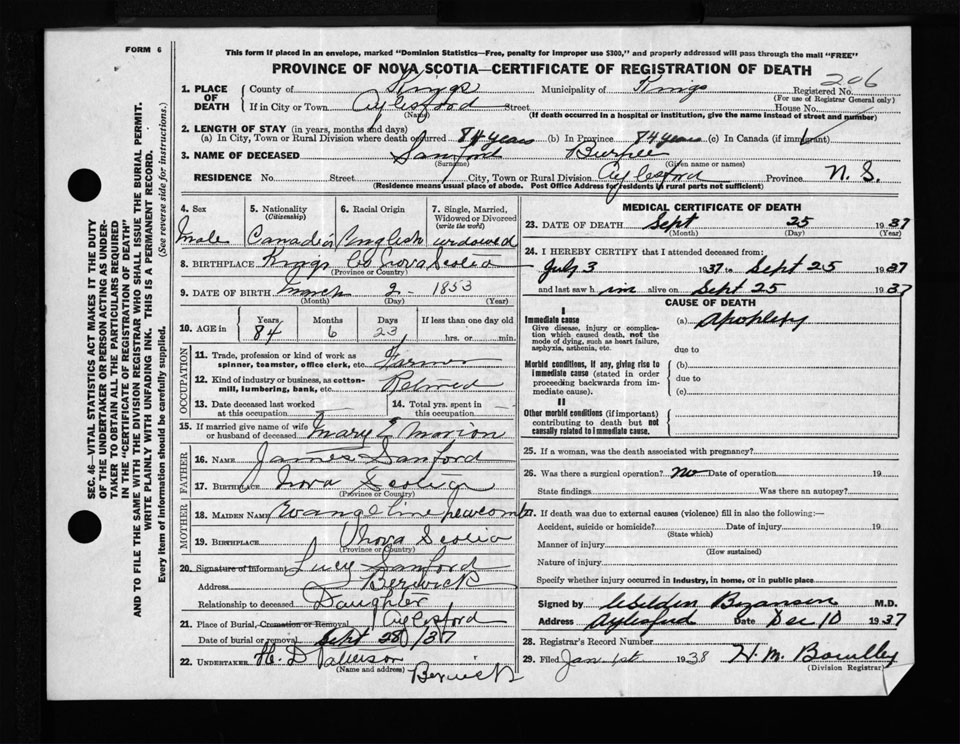 FORM 6
This form if placed in an envelope, marked "Dominion Statistics—Free, penalty for improper use $300," and properly addressed will pass through the mail "FREE"
PROVINCE OF NOVA SCOTIA—CERTIFICATE OF REGISTRATION OF DEATH
206
1. PLACE OF DEATH County of Kings Municipality of Kings Registered No.
(For use of Registrar General only)
If in City or Town Aylesford Street House No.
(Name) (If death occurred in a hospital or institution, give the name instead of street and number)
2. LENGTH OF STAY (in years, months and days)
(a) In City, Town or Rural Division where death occurred 84 years (b) In Province 84 years (c) In Canada (if immigrant)
3. NAME OF DECEASED Sanford Burpee
(Surname) (Given name or names)
RESIDENCE No. Street City, Town or Rural Division Aylesford Province N. S.
(Residence means usual place of abode. Post Office Address for residents in rural parts not sufficient)
SEC. 46—VITAL STATISTICS ACT MAKES IT THE DUTY
OF THE UNDERTAKER OR PERSON ACTING AS UNDER-
TAKER TO OBTAIN ALL THE PARTICULARS REQUIRED
IN THE "CERTIFICATE OF REGISTRATION OF DEATH"
AND TO FILE THE SAME WITH THE DIVISION REGISTRAR WHO SHALL ISSUE THE BURIAL PERMIT.
WRITE PLAINLY WITH UNFADING INK. THIS IS A PERMANENT RECORD.
Every item of information should be carefully supplied. (See reverse side for instructions.)
4. Sex 5. Nationality (Citizenship) 6. Racial Origin 7. Single, Married, Widowed or Divorced (write the word)
Male Canadian English widowed
8. BIRTHPLACE Kings Co Nova Scotia
(Province or Country)
9. DATE OF BIRTH March 2 - 1853
(Month) (Day) (Year)
10. AGE in Years Months Days If less than one day old
84 6 23 hrs. or min.
OCCUPATION
11. Trade, profession or kind of work as spinner, teamster, office clerk, etc. Farmer
12. Kind of industry or business, as cotton-mill, lumbering, bank, etc. Retired
13. Date deceased last worked at this occupation 14. Total yrs. spent in this occupation
15. If married give name of wife or husband of deceased Mary E
FATHER
16. NAME James Sanford
17. BIRTHPLACE Nova Scotia
(Province or Country)
MOTHER
18. MAIDEN NAME Evangeline newcomb
19. BIRTHPLACE Nova Scotia
(Province or Country)
20. Signature of Informant Lucy Sanford
Address Berwick
Relationship to deceased Daughter
21. Place of Burial, Cremation or Removal Aylesford
Date of burial or removal Sept 28/37
22. UNDERTAKER H. D Paterson
(Name and address) Berwick
MEDICAL CERTIFICATE OF DEATH
23. DATE OF DEATH Sept 25 1937
(Month) (Day) (Year)
24. I HEREBY CERTIFY that I attended deceased from:
July 3 1937 to Sept 25 1937
and last saw h im alive on Sept 25 1937
CAUSE OF DEATH
I
Immediate cause (a) Apoplexy
Give disease, injury or complication which caused death, not the mode of dying, such as heart failure, asphyxia, asthenia, etc.
due to
Morbid conditions, if any, giving rise to immediate cause (stated in order proceeding backwards from immediate cause). (b)
due to
(c)
II
Other morbid conditions (if important) contributing to death but not causally related to immediate cause.
25. If a woman, was the death associated with pregnancy?
26. Was there a surgical operation? no Date of operation 19
State findings Was there an autopsy?
27. If death was due to external causes (violence) fill in also the following:—
Accident, suicide or homicide? Date of injury 19
(State which)
Manner of injury
(How sustained)
Nature of injury
Specify whether injury occurred in industry, in home, or in public place
Signed by Bezanson M.D.
Address Aylesford Date Dec 10 1937
28. Registrar's Record Number
29. Filed Jan 1st 1938 H. M.
(Division Registrar)